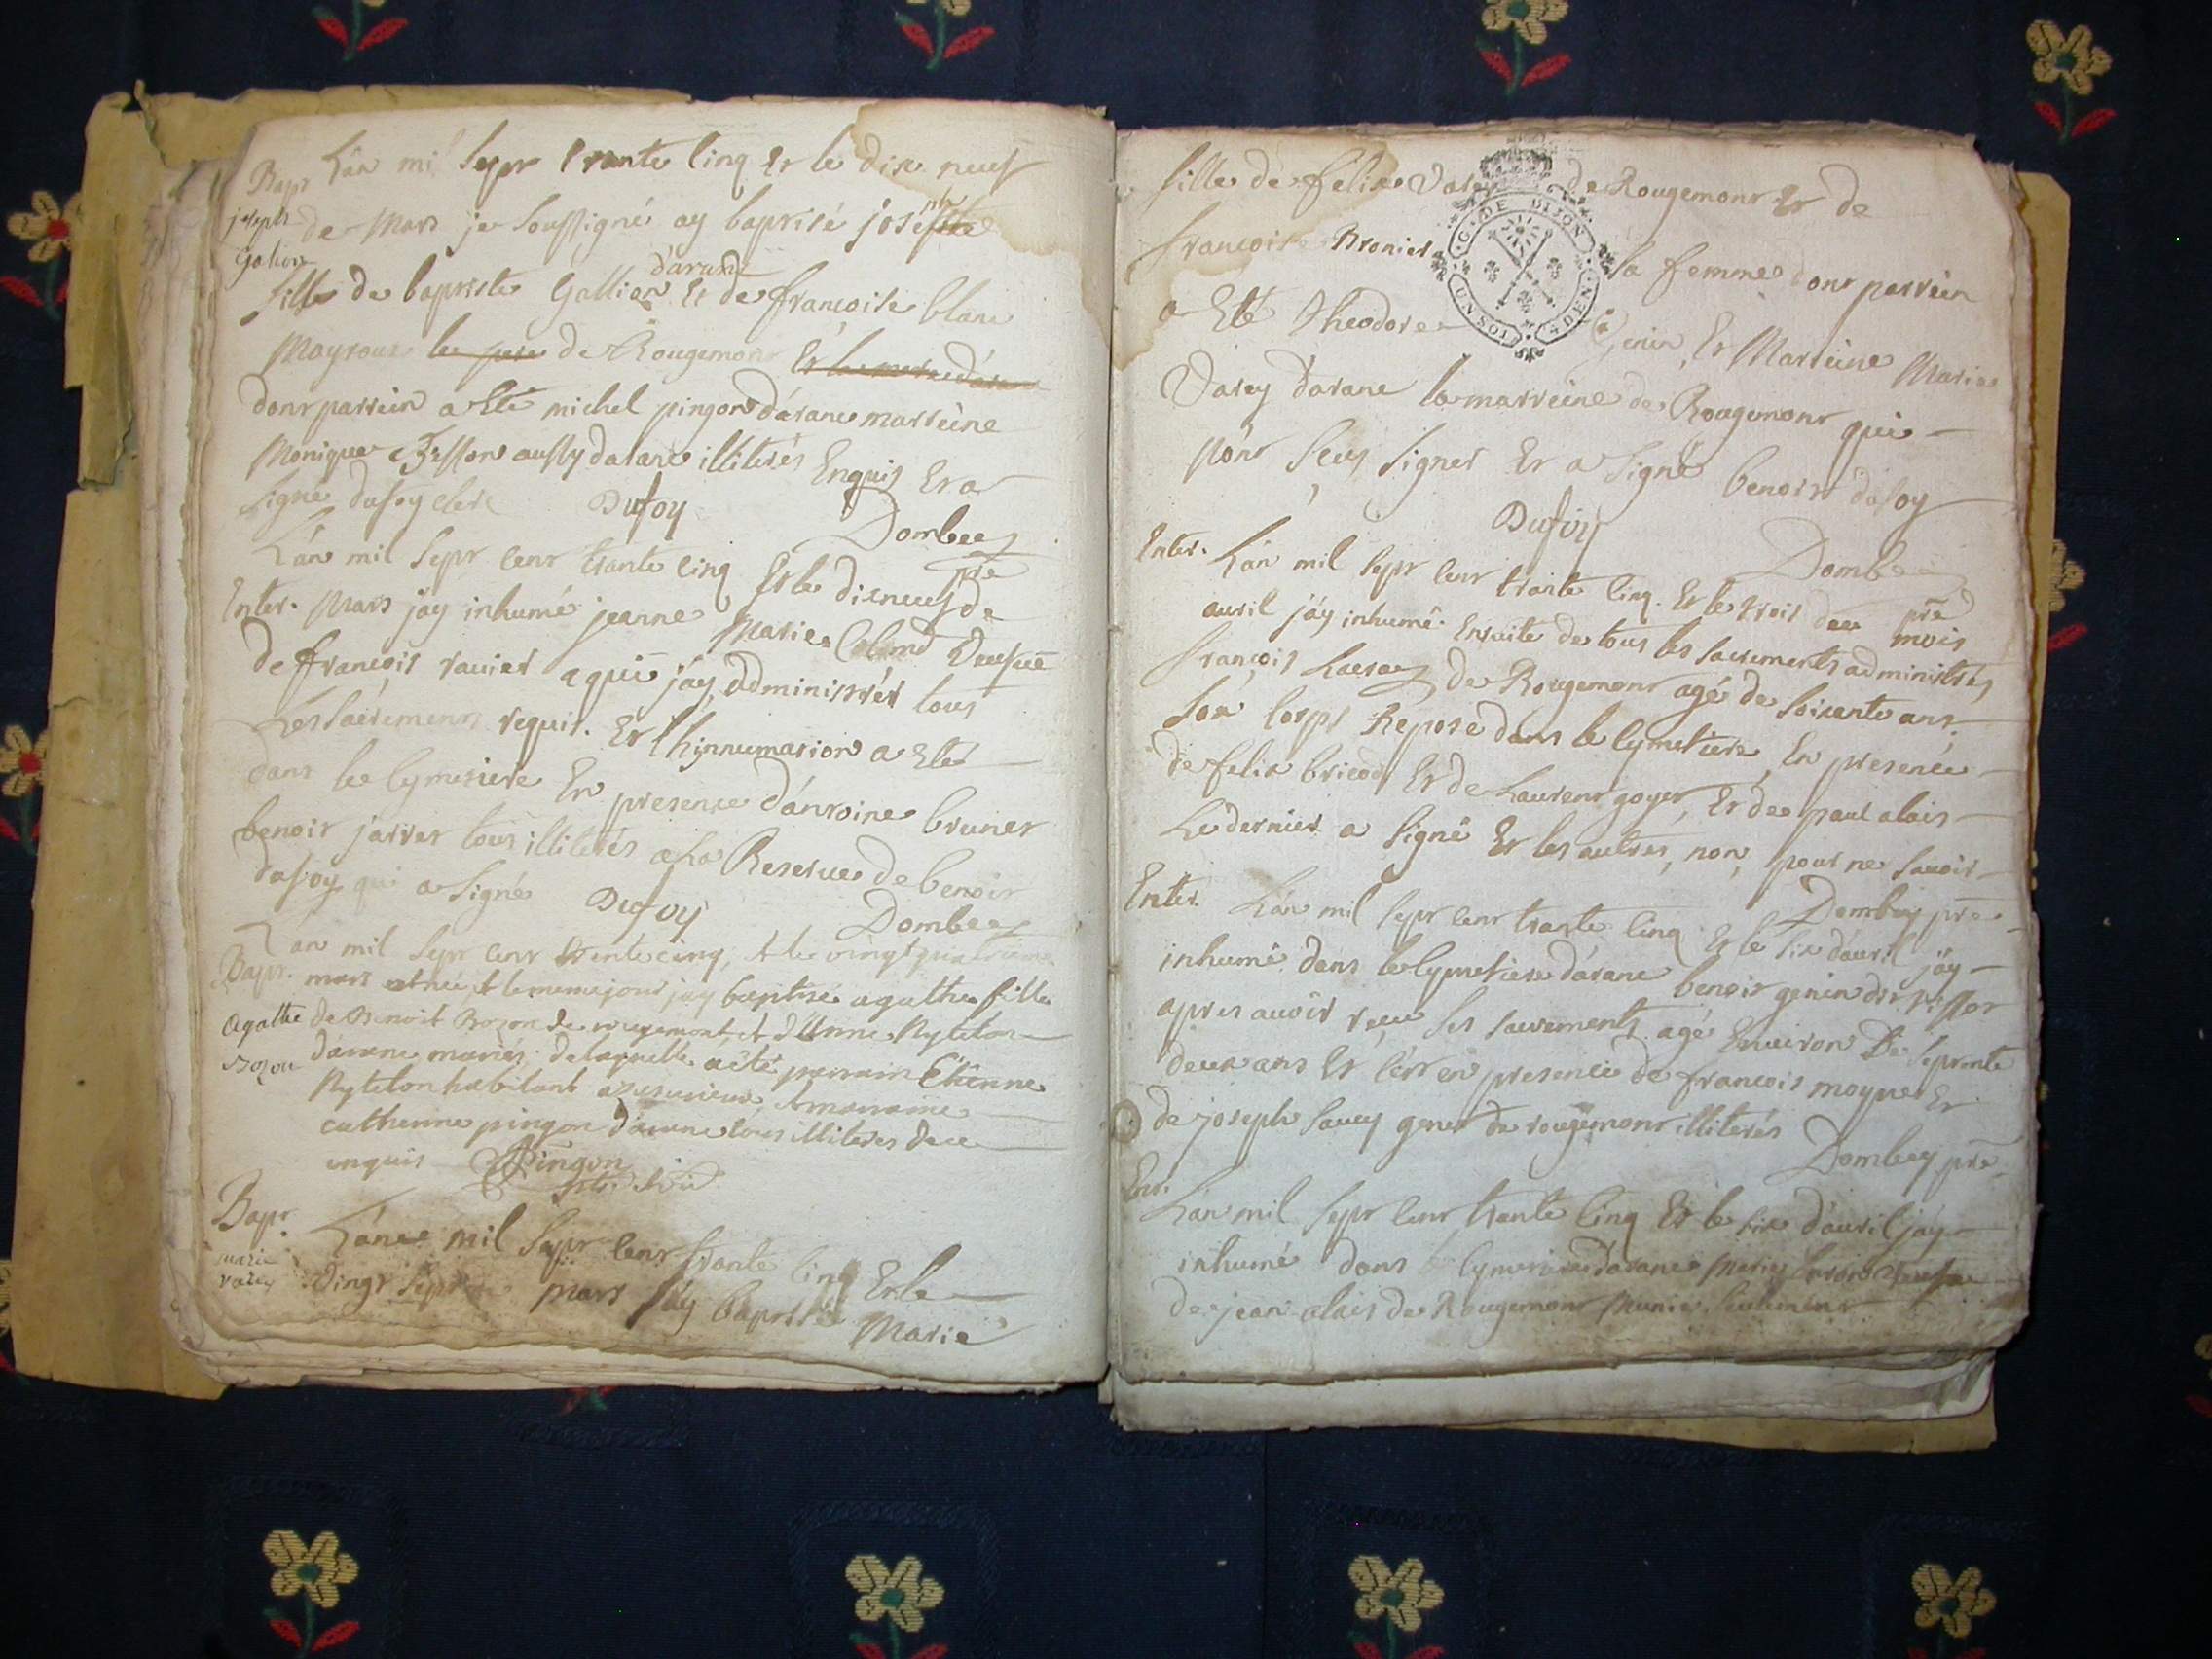 Bapt
joseph
Galion
Lán mil sept trante cinq et le dix neuf
de Mars je soussigné ay baptisé joséph
fille de baptiste Gallion dáranc et de francoise blanc
Mayrous le pere de Rougemont
dont parrein a Eté michel pingon dáranc marreine
Monique aussy daranc illiterés Enquis Et a
signé dufoy clerc Dufoy Dombey
pre
Lán mil sept cent trante cinq Et le dixneuf de
Enter. Mars jáy inhumé jeanne Marie
de françois ravier a qui jáy administrés tous
Les sacrements requis. Et lhinnumation a Eté
dans le cymetiere En presence dántoine brunet
benoit jarret tous illiterés a la Reserve de benoit
dufoy qui a signé Dufoy Dombey
Bapt. Lán mil sept cent trente cinq, et le vingt quatrieme
mars est née, et le meme jour jay baptisé agathe fille
Agathe
Bozon
de Benoit Bozon de rougemont et d'Anne Ryteton
dáranc mariés, de laquelle a été parrain Etienne
Ryteton habitant et marraine
catherine pingon dáranc tous illiteres de ce
enquis Pingon
Bapt.
marie
varey
Láne mil sept cent trante cinq Et le
vingt sept mars jáy baptisé Marie
fille de felix Varey de Rougemont Et de
françoise Bronier sa femme dont parrein
G. DE DIJON
UN SOL 4 DEN
a Eté theodore Genin Et Marreine Marie
Varey daranc la marreine de Rougemont qui
n'ont sceu signer Et a signé benoit dufoy
Dufoy Dombey
pre
Enter. Lán mil sept cent trante cinq. Et le trois du mois
auril jáy inhumé Ensuite de tous les sacrements administrés
françois de Rougemont agé de soixante ans
son corps Repose dans le cymetiere En presence
de felix bricod Et de Laurent goyet, Et de paul alais
Le dernier a signé Et les autres, non, pour ne savoir
Dombey pre
Enter. Lán mil sept cent trante cinq Et le six dáuril jáy
inhumé dans le cymetiere dáranc benoit genin
apres auoir reçu ses sacrements agé Enuiron De septante
deux ans Et cért en presence de francois moyne Et
de joseph savey genet de rougemont illiterés
Dombey pre
Ent. Lán mil sept cent trante cinq Et le six dáuril jáy
inhumé dans le cymetiere dáranc Marie
de jean alais de Rougemont Munie seulement